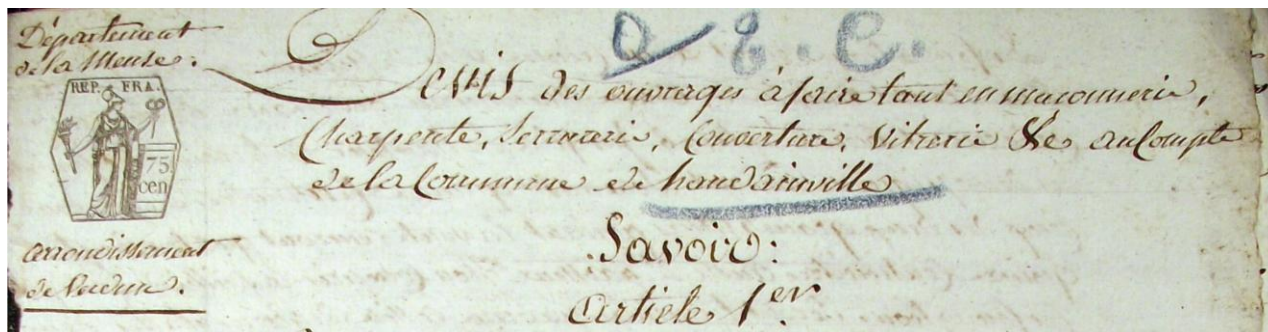 Département
de la Meuse.
REP. FRA.
75
cen
arrondissement
de Verdun.
D E. C.
Devis des ouvrages à faire tant en maconnerie,
Charpente, Serrurerie, Couverture, Vitrerie &c au Compte
de la Commune de haudainville
Savoir:
article 1.er